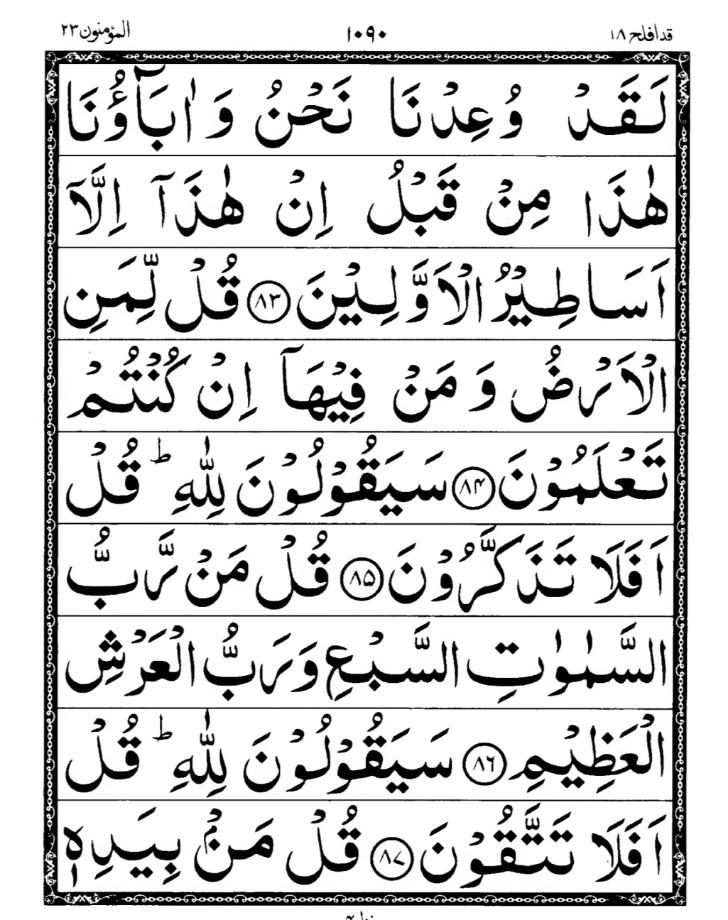 قد افلح ۱۸
۱۰۹۰
المؤمنون ۲۳
لَقَدْ وُعِدْنَا نَحْنُ وَ اٰبَآؤُنَا
هٰذَا مِنْ قَبْلُ اِنْ هٰذَآ اِلَّآ
اَسَاطِيْرُ الْاَوَّلِيْنَ ﴿۸۳﴾ قُلْ لِّمَنِ
الْاَرْضُ وَ مَنْ فِيْهَآ اِنْ كُنْتُمْ
تَعْلَمُوْنَ ﴿۸۴﴾ سَيَقُوْلُوْنَ لِلّٰهِ ؕ قُلْ
اَفَلَا تَذَكَّرُوْنَ ﴿۸۵﴾ قُلْ مَنْ رَّبُّ
السَّمٰوٰتِ السَّبْعِ وَ رَبُّ الْعَرْشِ
الْعَظِيْمِ ﴿۸۶﴾ سَيَقُوْلُوْنَ لِلّٰهِ ؕ قُلْ
اَفَلَا تَتَّقُوْنَ ﴿۸۷﴾ قُلْ مَنْۢ بِيَدِهٖ